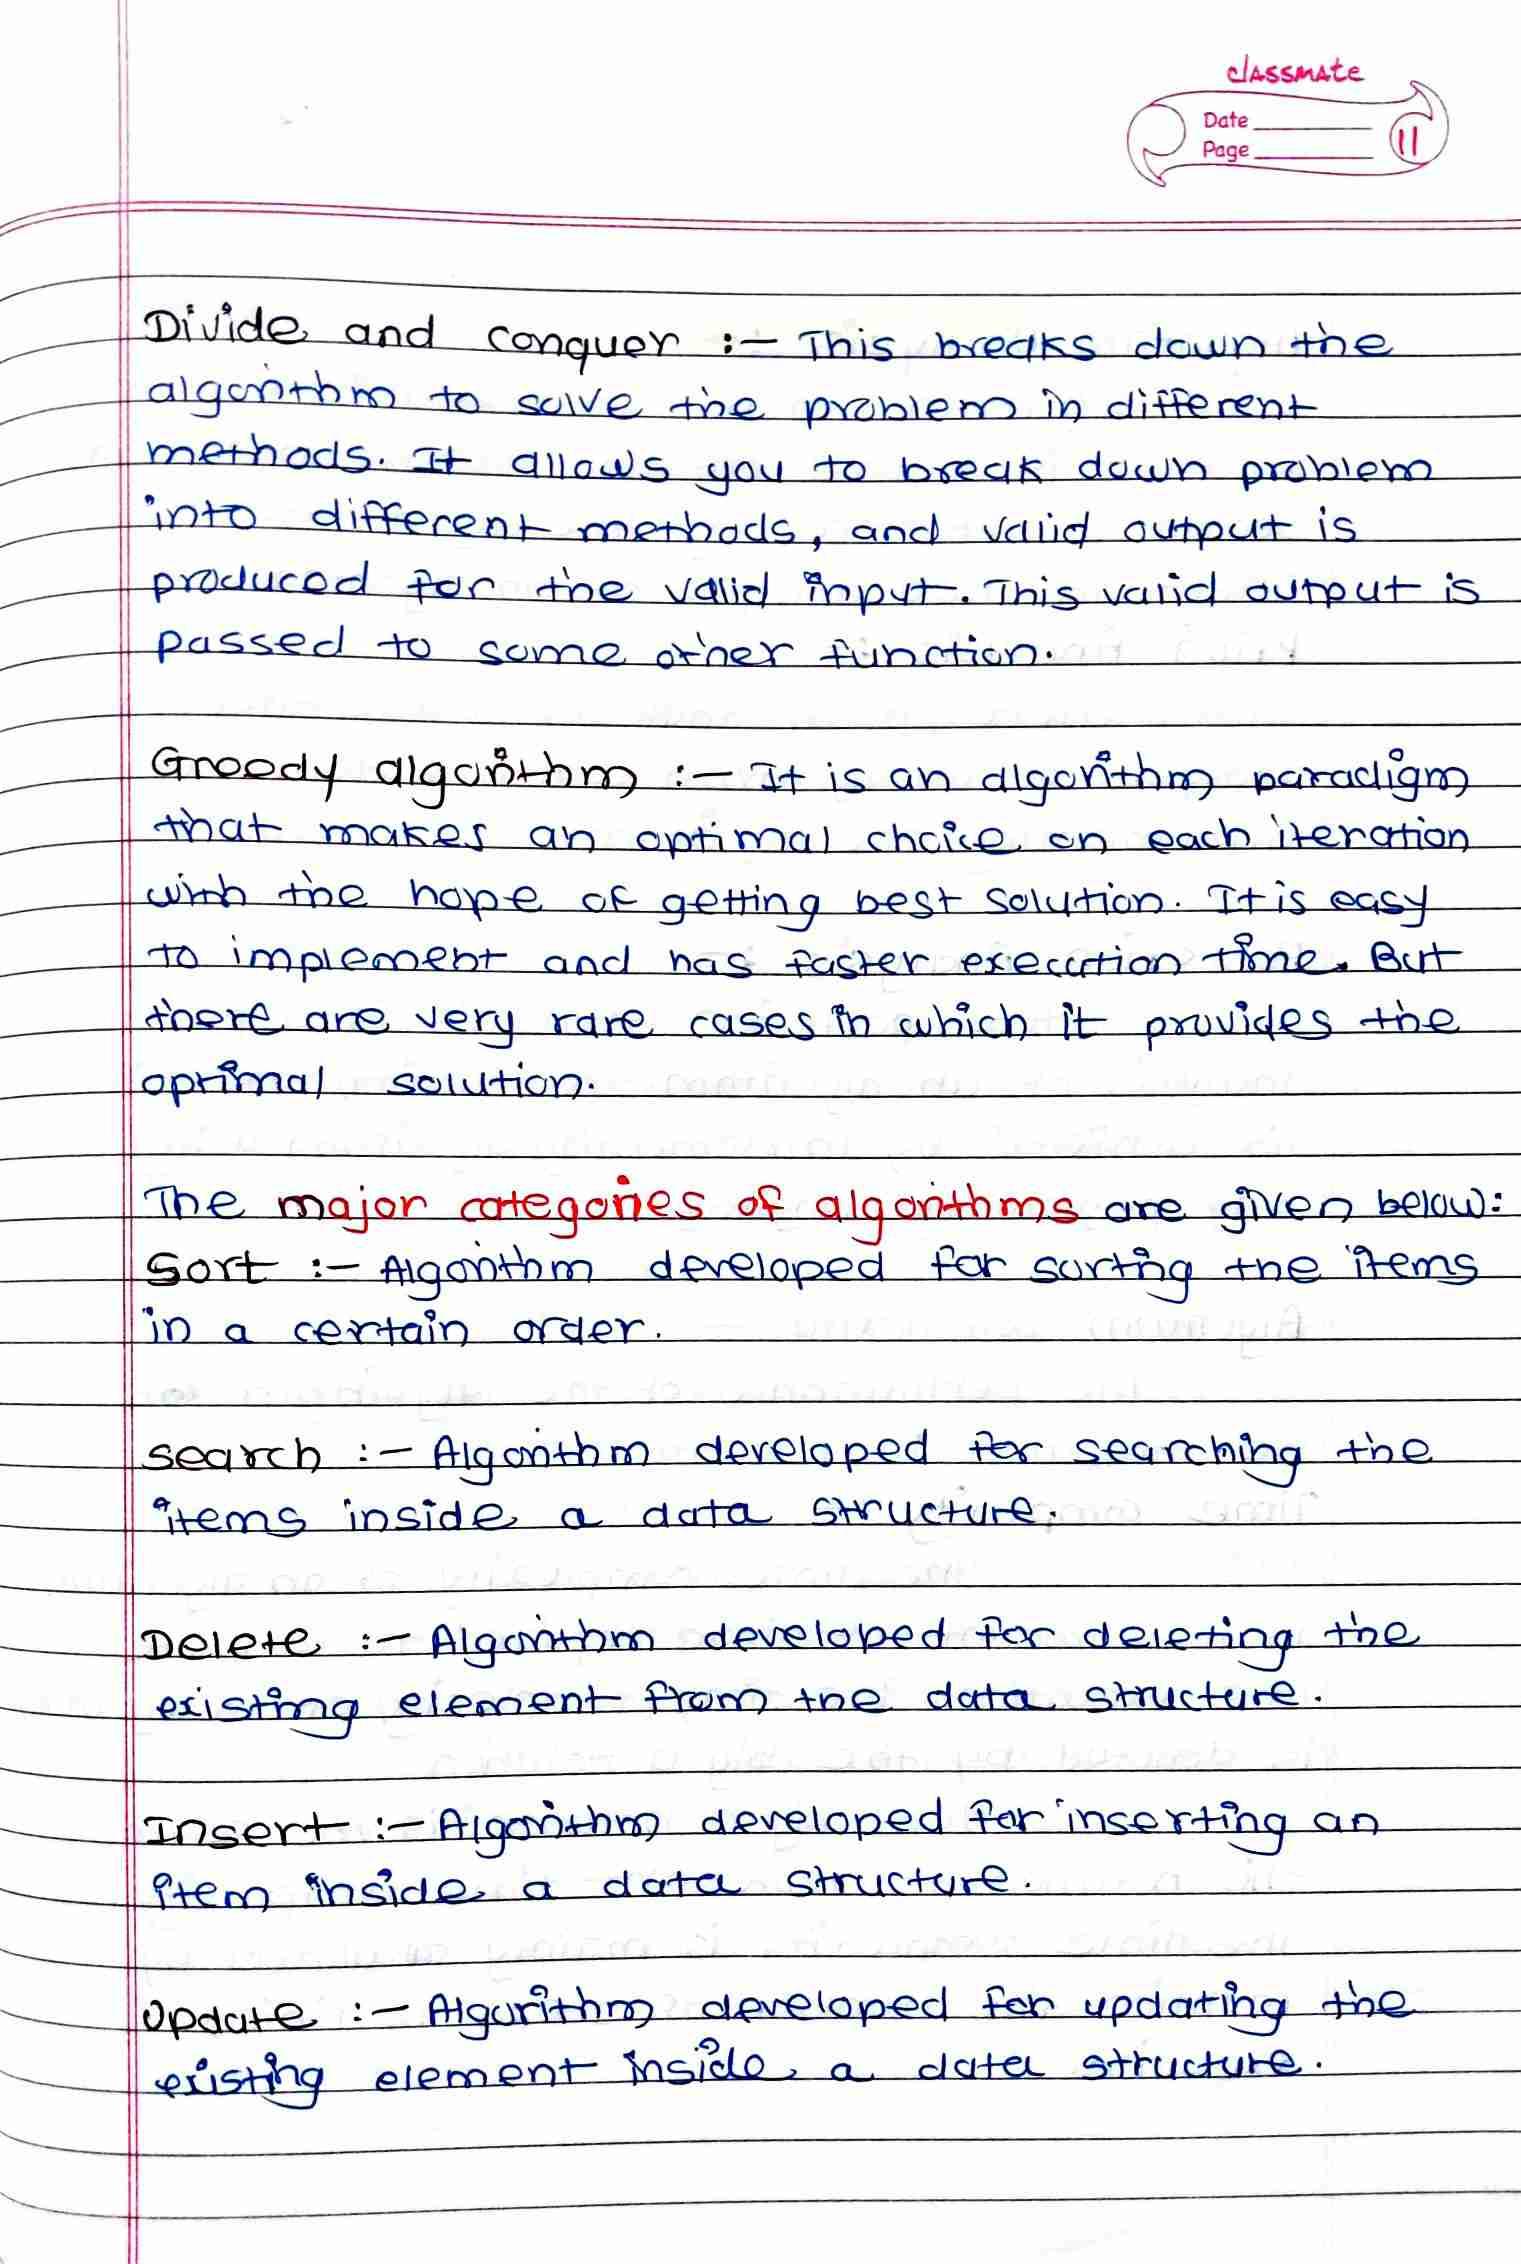 classmate
Date
Page
11
Divide and conquer :- This breaks down the
algorithm to solve the problem in different
methods. It allows you to break down problem
into different methods, and valid output is
produced for the valid input. This valid output is
passed to some other function.
Greedy algorithm :- It is an algorithm paradigm
that makes an optimal choice on each iteration
with the hope of getting best solution. It is easy
to implement and has faster execution time. But
there are very rare cases in which it provides the
optimal solution.
The major categories of algorithms are given below:
Sort :- Algorithm developed for sorting the items
in a certain order.
Search :- Algorithm developed for searching the
items inside a data structure.
Delete :- Algorithm developed for deleting the
existing element from the data structure.
Insert :- Algorithm developed for inserting an
item inside a data structure.
Update :- Algorithm developed for updating the
existing element inside a data structure.